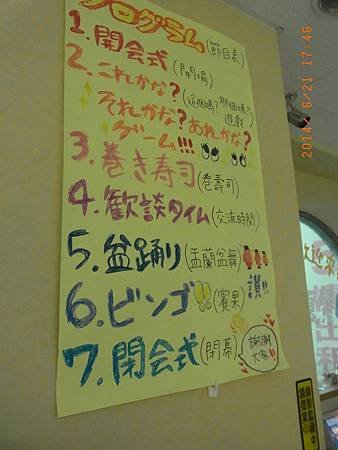 プログラム(節目表)
1.開会式(開場)
2.これかな?(這個嗎?那個嗎?遊戲)
それかな?あれかな?
ゲーム!!!
3.巻き寿司(巻壽司)
4.歓談タイム(交流時間)
5.盆踊り(盂蘭盆舞)
6.ビンゴ!!(賓果)讚!!
7.閉会式(閉幕)
謝謝大家!!
2014 6/21 17:46
歡迎來